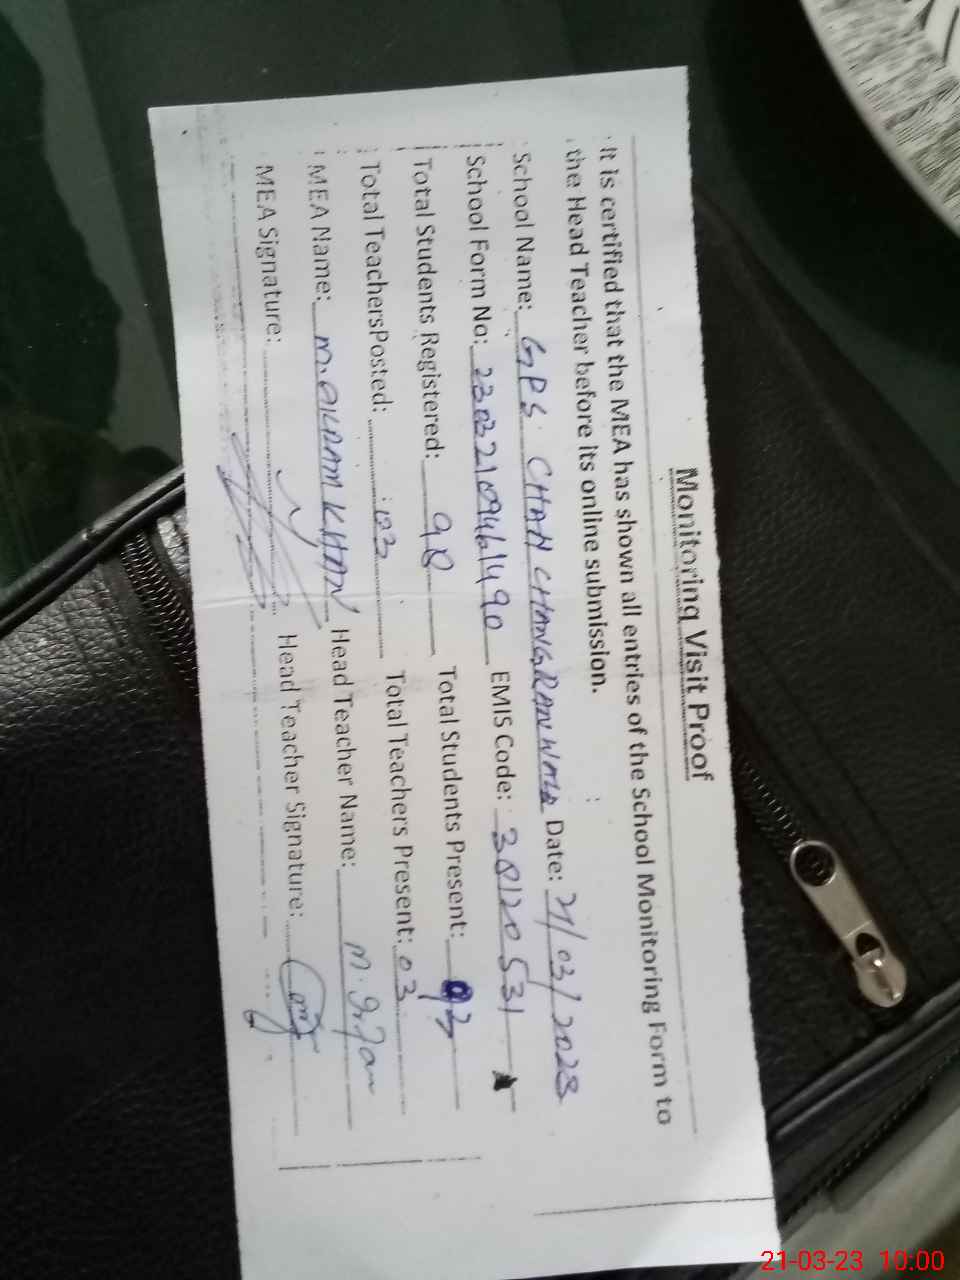 Monitoring Visit Proof
It is certified that the MEA has shown all entries of the School Monitoring Form to
the Head Teacher before its online submission.
School Name: GPS CHAH CHANGRANWALA Date: 21/03/2023
School Form No: EMIS Code: 38120531
Total Students Registered: 98 Total Students Present: 92
Total TeachersPosted: 03 Total Teachers Present: 03
MEA Name: M. KHAN Head Teacher Name: M. Irfan
MEA Signature: Head Teacher Signature:
21-03-23 10:00